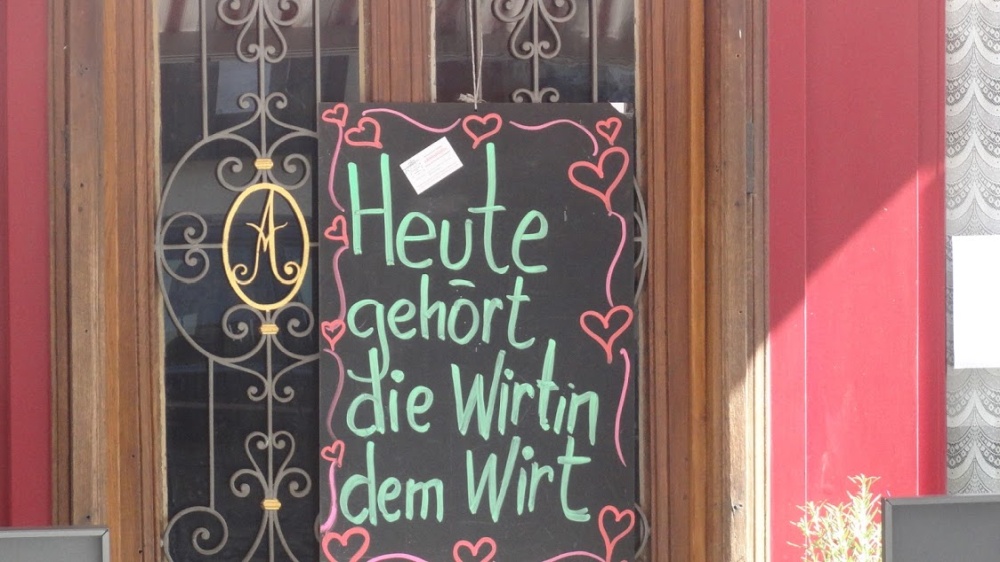 Heute
gehört
die Wirtin
dem Wirt